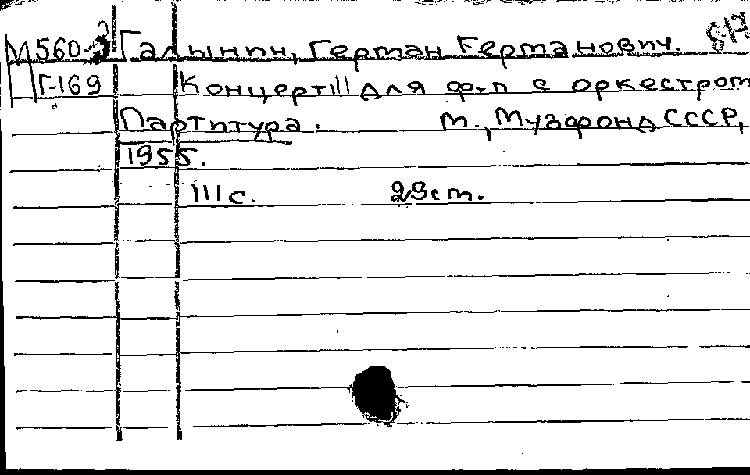 М560-3 Галынин, Герман Германович.
Г-169 Концерт для ф-п с оркестром
Партитура. М., Музфонд СССР,
1955.
111 с. 29 см.